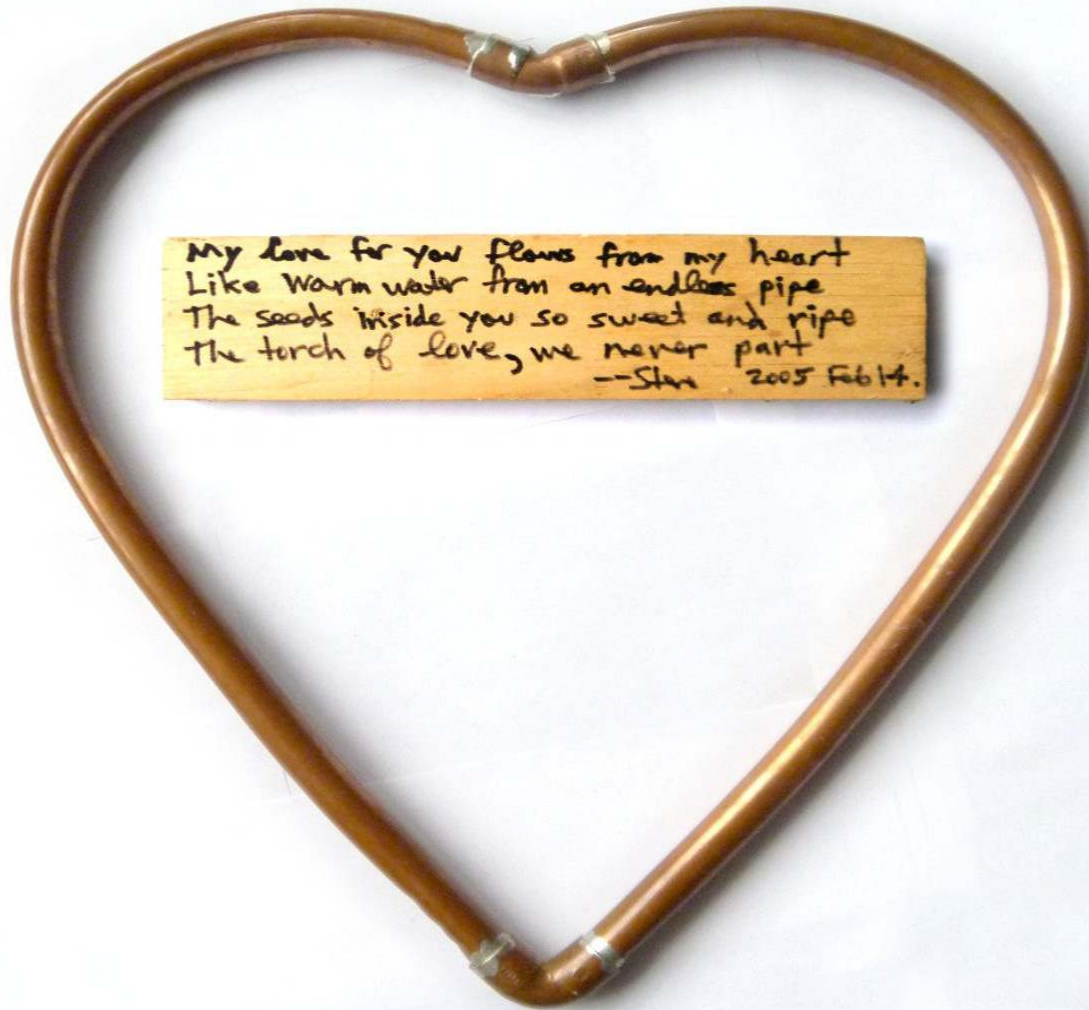 My love for you flows from my heart
Like warm water from an endless pipe
The seeds inside you so sweet and ripe
The torch of love, we never part
-- 2005 Feb 14.